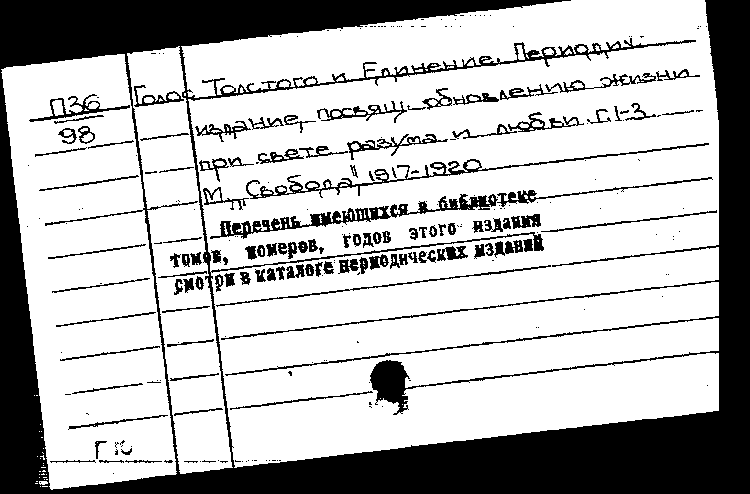 П36
98
Голос Толстого и Единение. Периодич.
издание, посвящ. обновлению жизни
при свете разума и любви. Г.1-3.
М., "Свобода", 1917-1920
Перечень имеющихся в библиотеке
томов, номеров, годов этого издания
смотри в каталоге периодических изданий